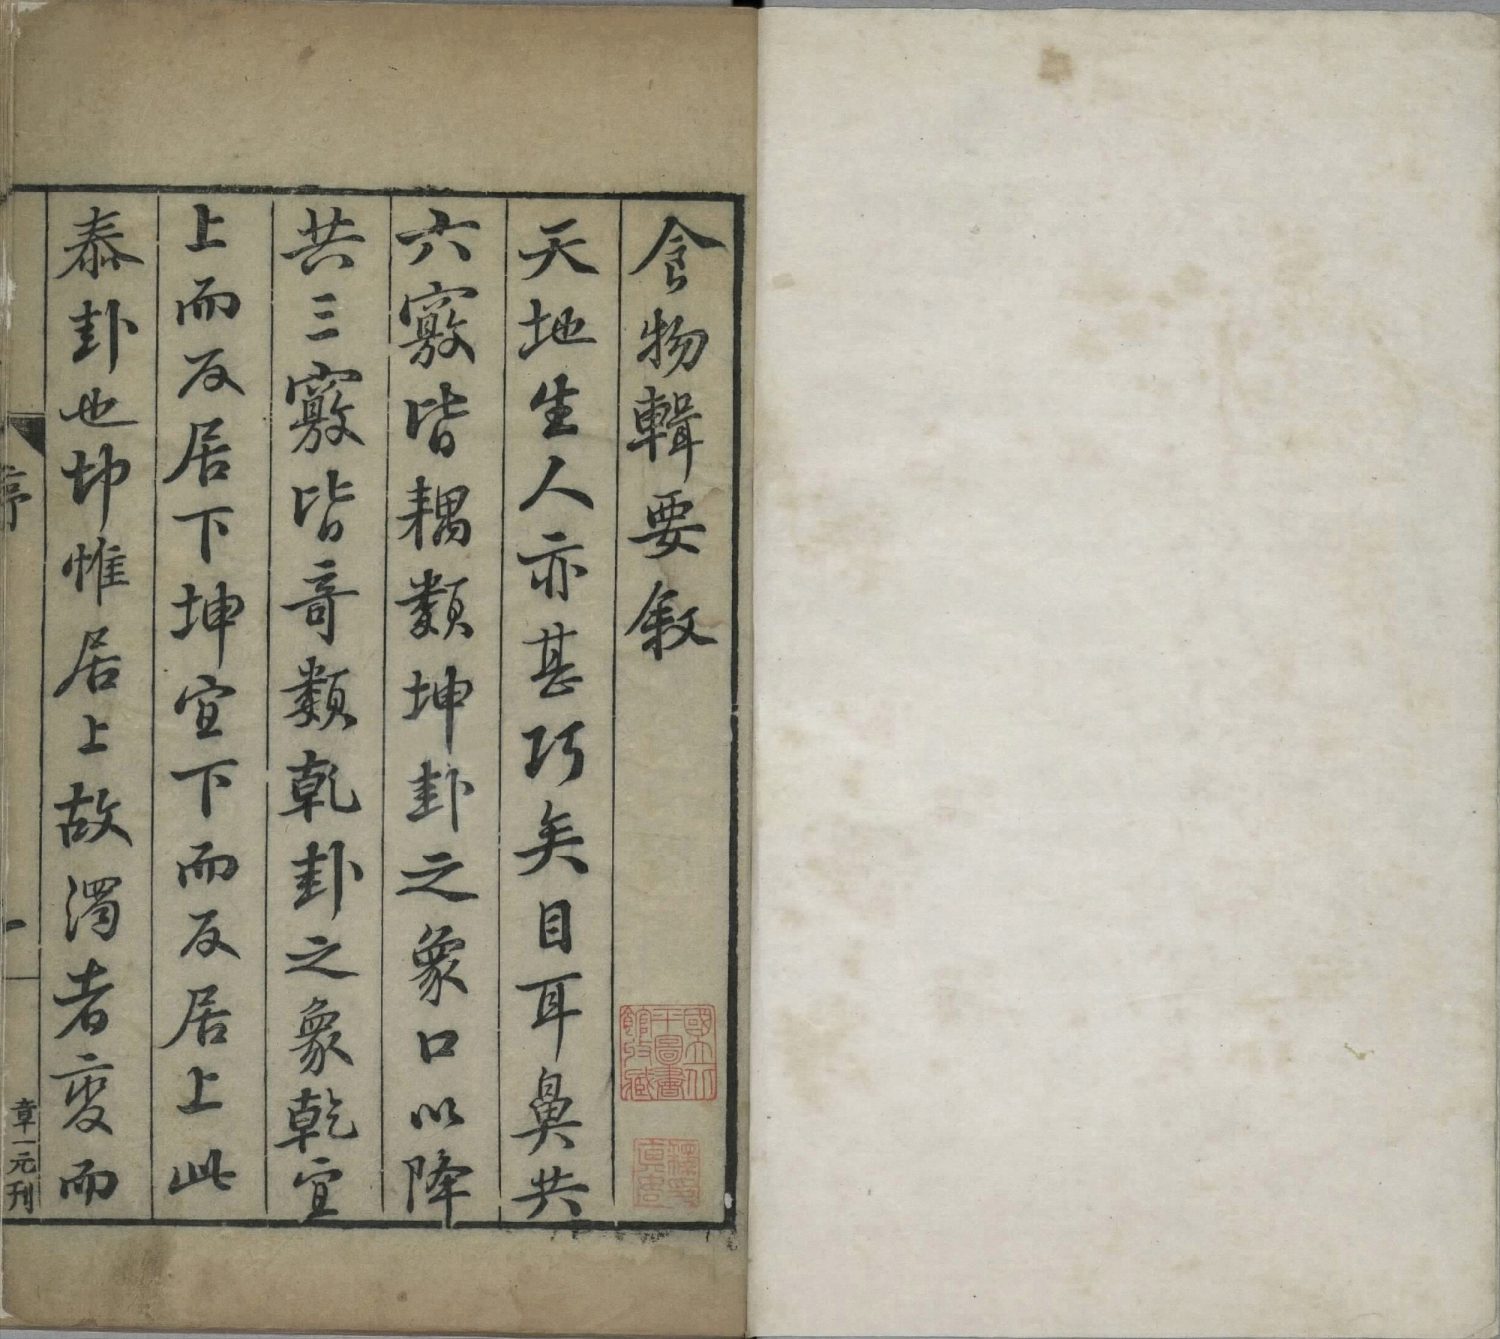 食物輯要敘
天地生人亦甚巧矣目耳鼻共
六竅皆耦類坤卦之象口以降
共三竅皆奇類乾卦之象乾宜
上而反居下坤宜下而反居上此
泰卦也坤惟居上故濁者变而
序
一
章一元刊
國立北平圖書館收藏